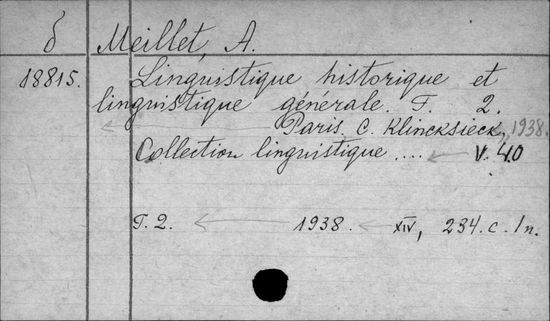 δ Meillet, A.
18815. Linguistique historique et
linguistique générale. T. 2.
Paris. C. Klincksieck, 1938.
Collection linguistique .... V. 40
T. 2. 1938. XIV, 234. c. 1n.